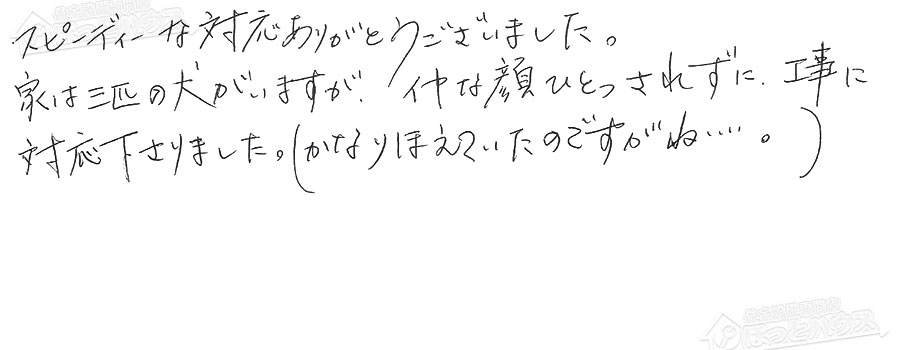 スピーディーな対応ありがとうございました。
家は三匹の犬がいますが、イヤな顔ひとつされずに、工事に
対応下さりました。(かなりほえていたのですがね…。)
ほっとハウス